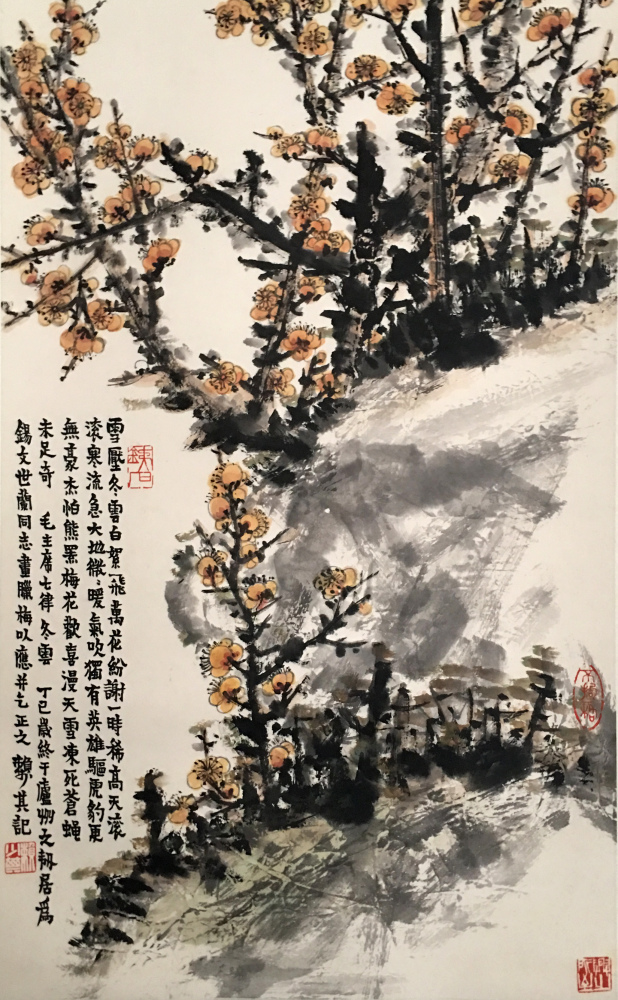 雪壓冬雲白絮飛萬花紛謝一時稀高天滾
滾寒流急大地微〻暖氣吹獨有英雄驅虎豹更
無豪杰怕熊羆梅花歡喜漫天雪凍死蒼蠅
未足奇 毛主席七律冬雲 丁巳歲終于廬州之韧居爲
錫文世蘭同志畫臘梅以應并乞正之 龔其記